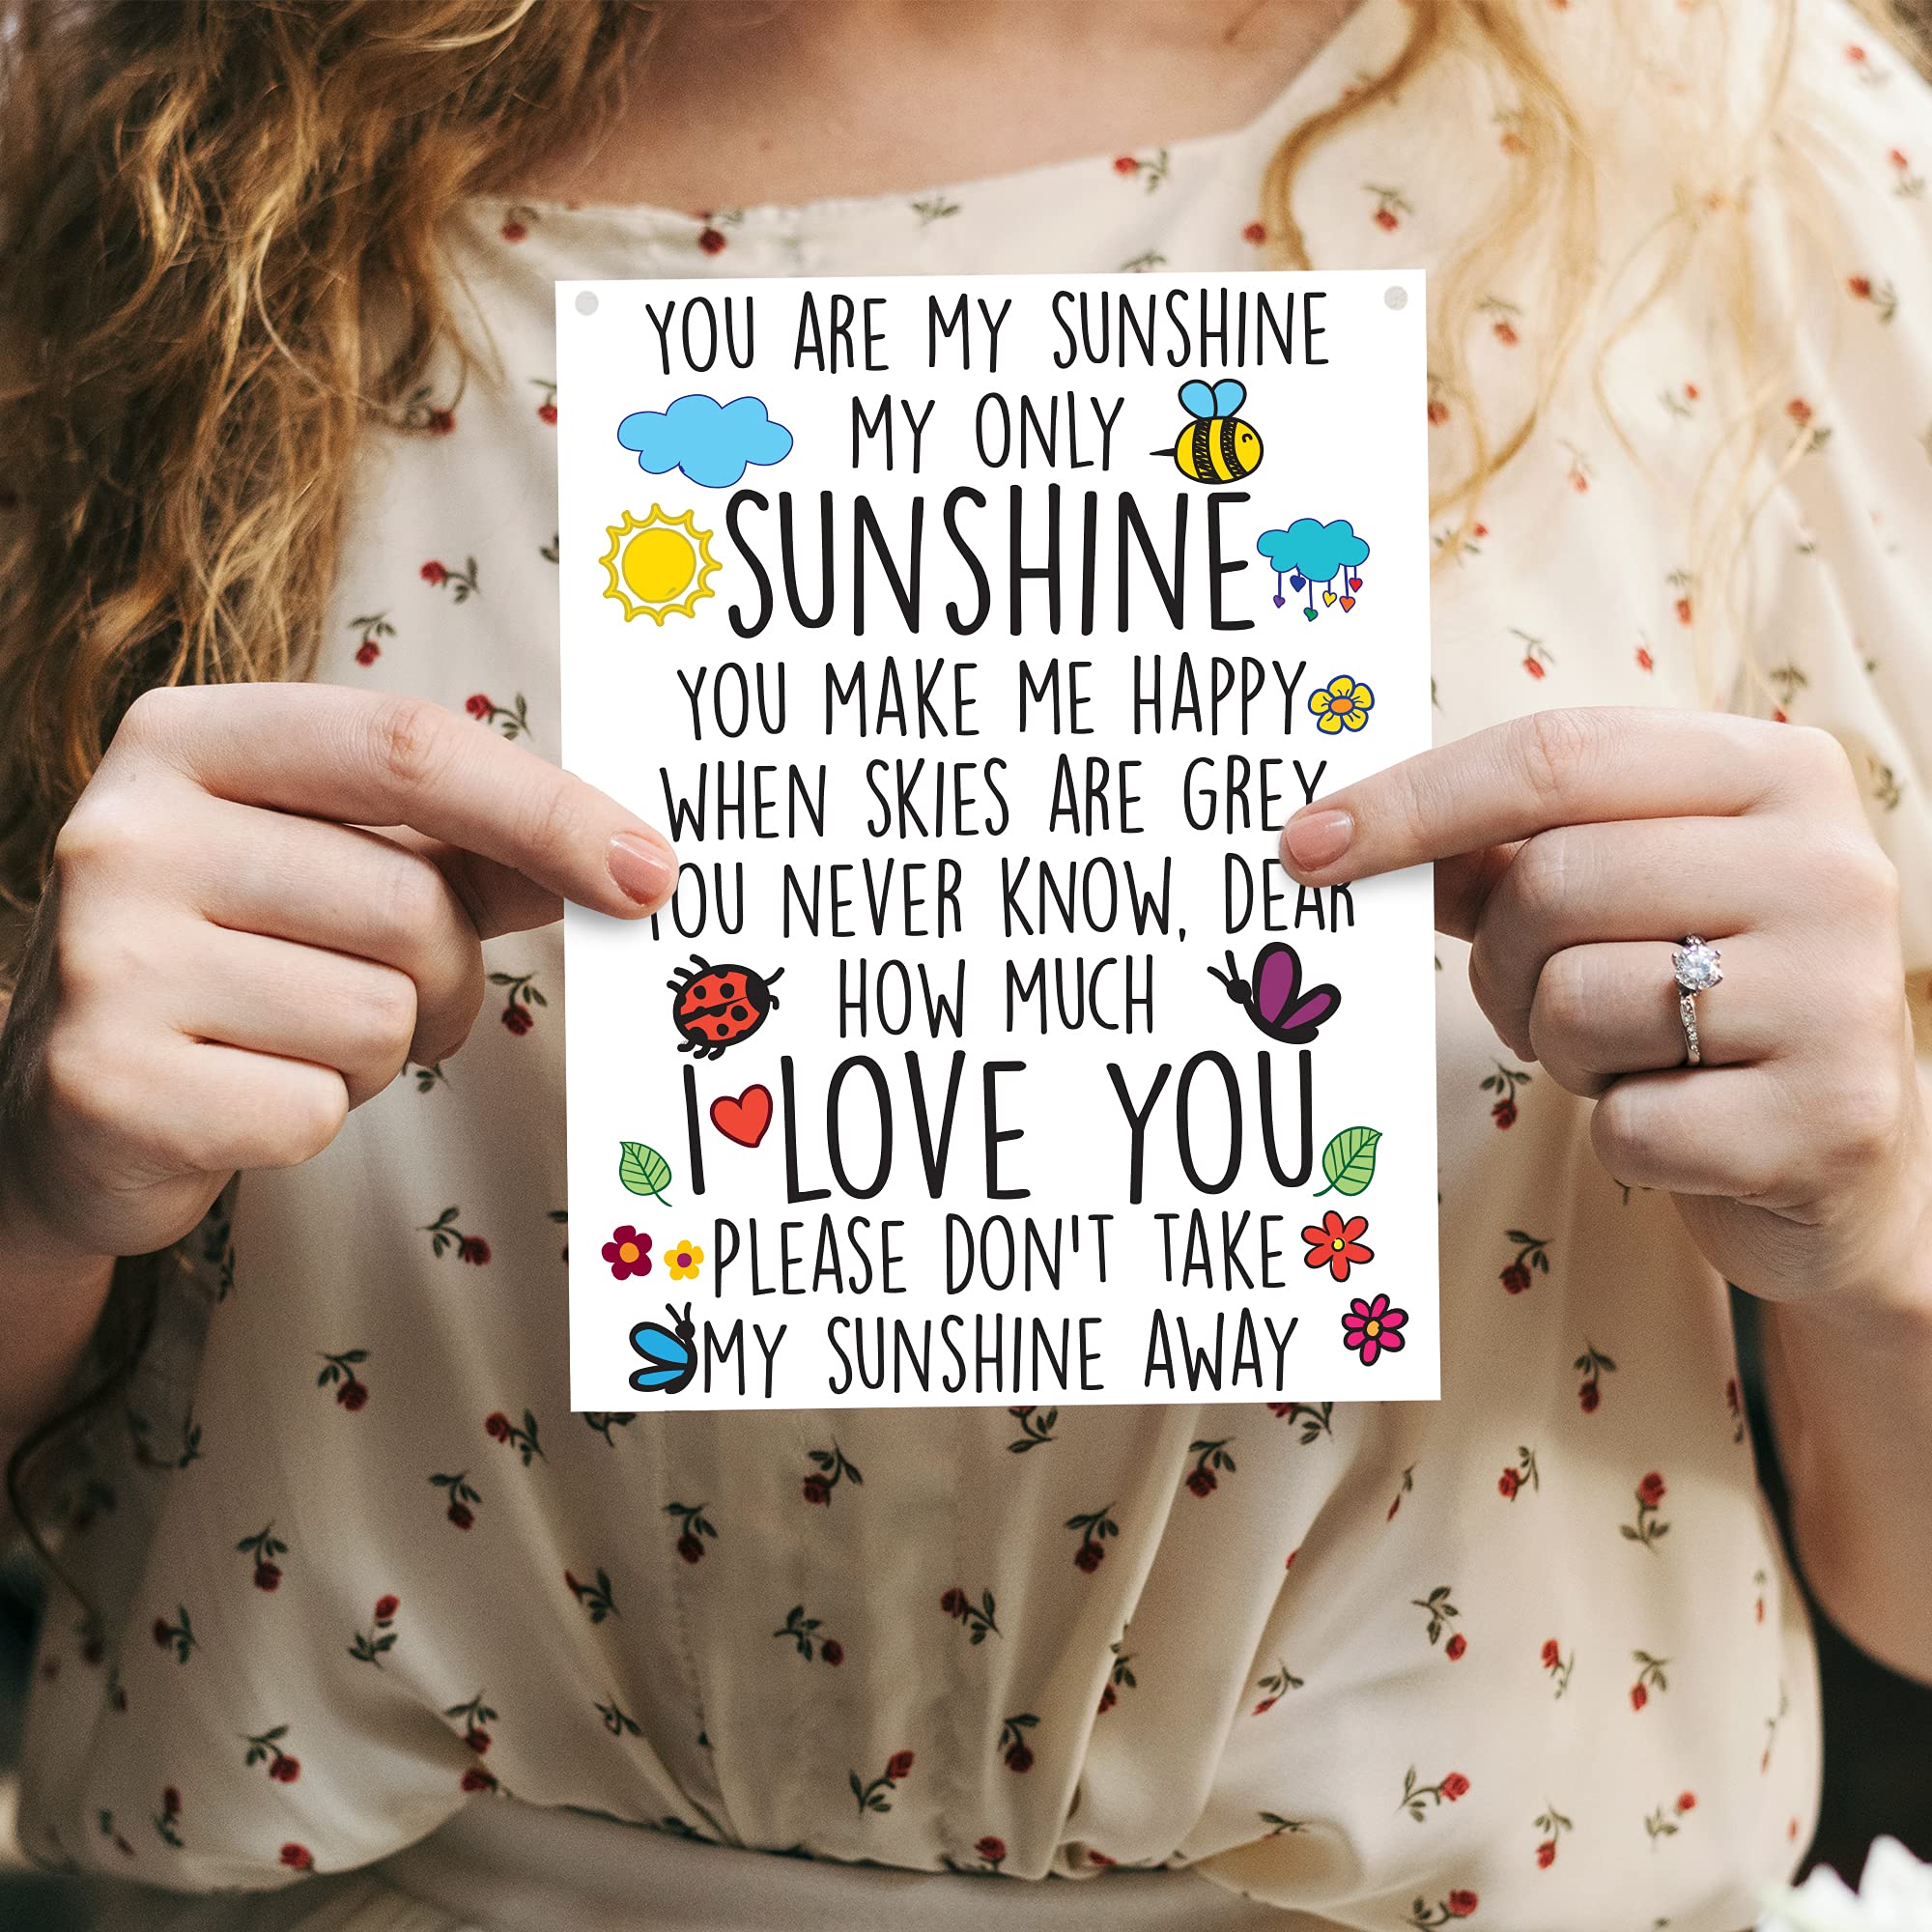 YOU ARE MY SUNSHINE
MY ONLY
SUNSHINE
YOU MAKE ME HAPPY
WHEN SKIES ARE GREY
YOU NEVER KNOW, DEAR
HOW MUCH
I LOVE YOU
PLEASE DON'T TAKE
MY SUNSHINE AWAY